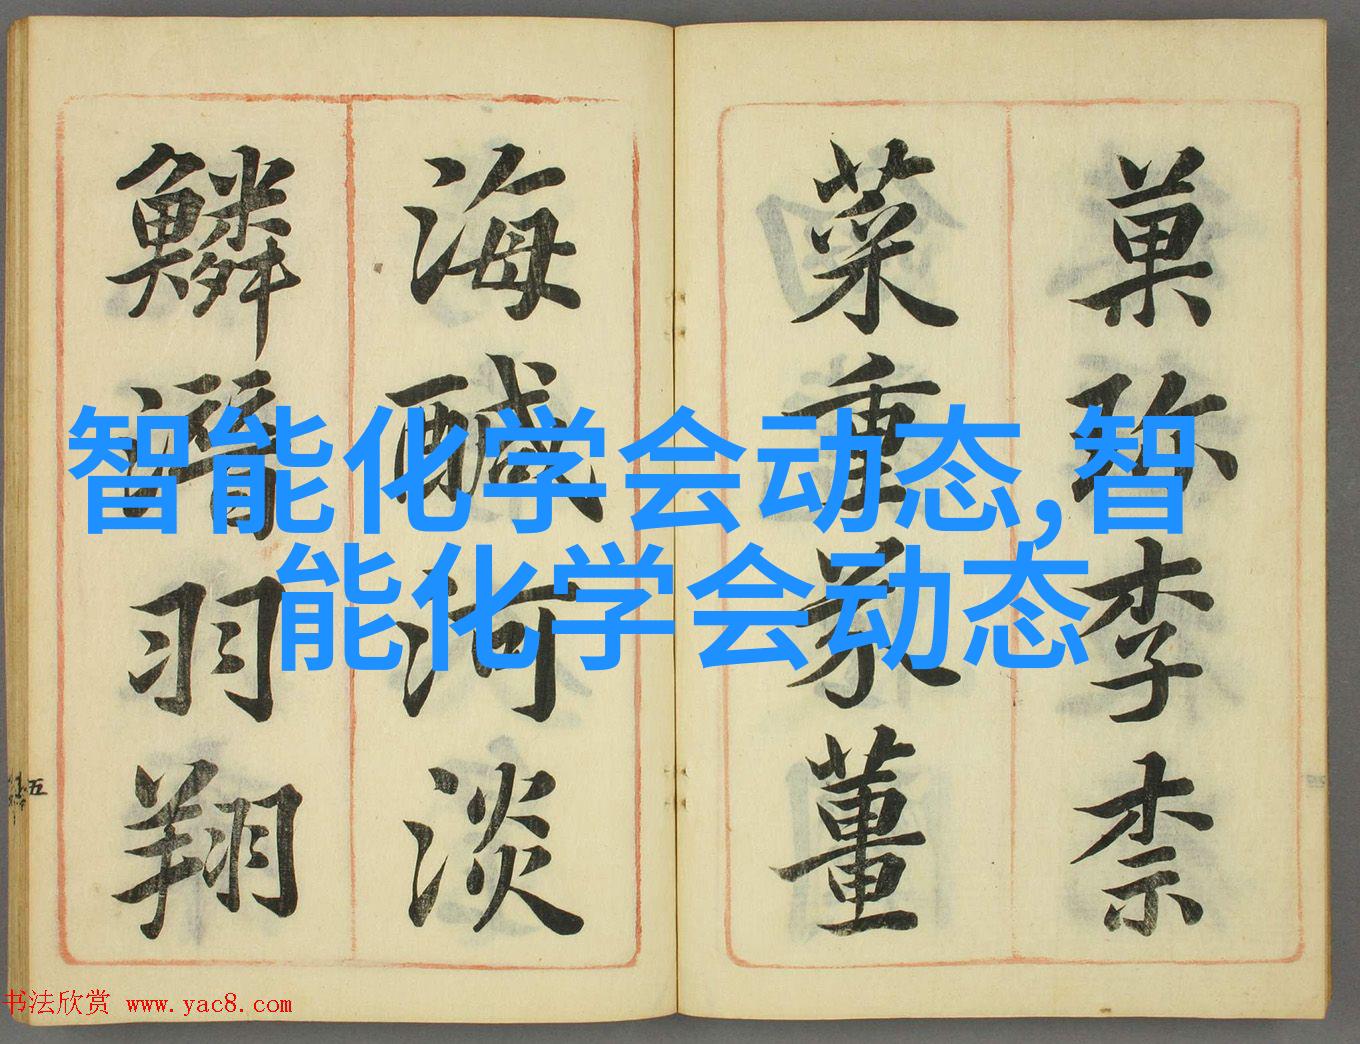 菓珎李柰
菜重芥薑
海醎河淡
鱗潛羽翔
智能化学会动态,智
能化学会动态
五
书法欣赏 www.yac8.com